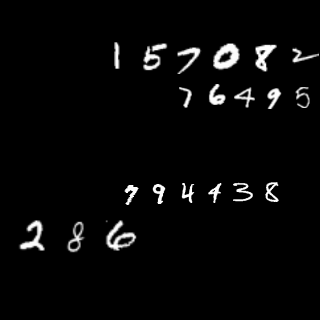 157082
76495
794438
286